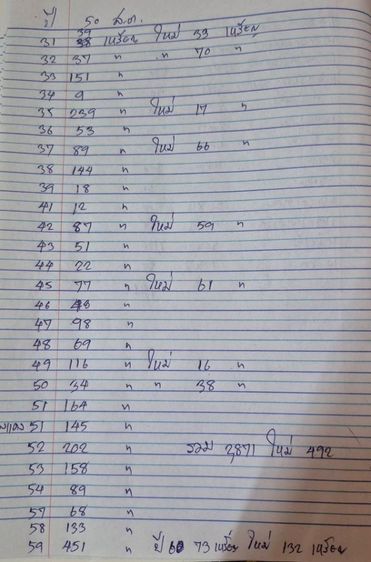 ปี 50 ส.ต.
39
31 38 เหรียญ ใหม่ 33 เหรียญ
32 37 " " 70 "
33 151 "
34 9 "
35 239 " ใหม่ 17 "
36 53 "
37 89 " ใหม่ 66 "
38 144 "
39 18 "
41 12 "
42 87 " ใหม่ 59 "
43 51 "
44 22 "
45 77 " ใหม่ 61 "
46 48 "
47 98 "
48 69 "
49 116 " ใหม่ 16 "
50 34 " " 38 "
51 164 "
51 145 "
52 202 " รวม 2,871 ใหม่ 492
53 158 "
54 89 "
57 68 "
58 133 "
59 451 " ปี 60 73 เหรียญ ใหม่ 132 เหรียญ